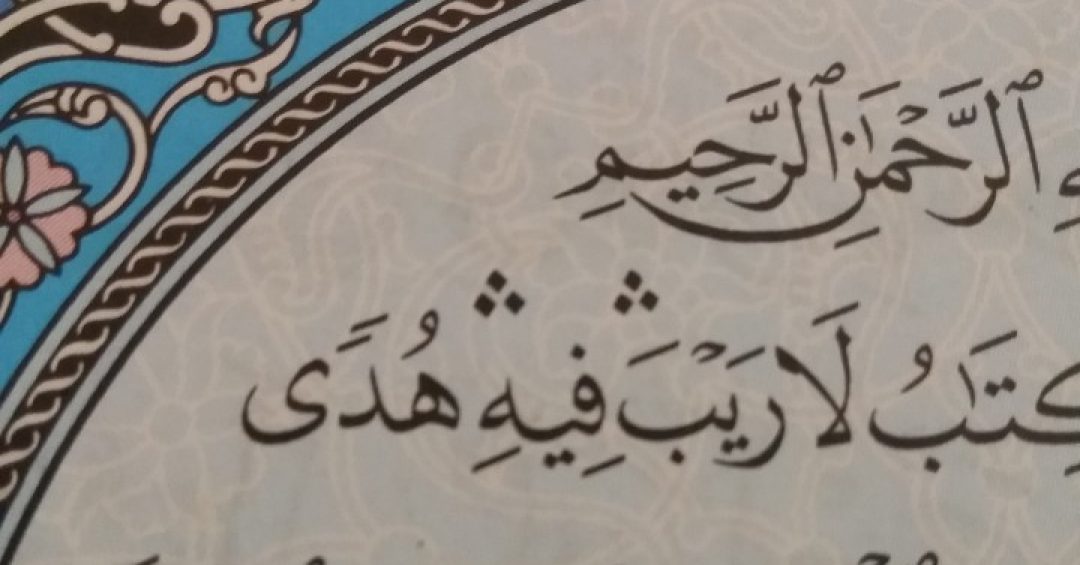 ٱلرَّحْمَٰنِ ٱلرَّحِيمِ
كِتَٰبُ لَا رَيْبَ ۛ فِيهِ ۛ هُدًى